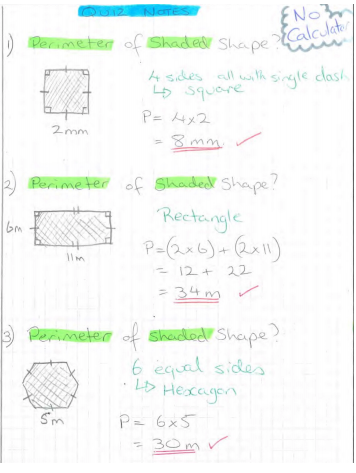 QUIZ NOTES
No Calculator
1) Perimeter of Shaded Shape?
4 sides all with single dash
↳ square
2mm
P= 4x2
= 8mm ✓
2) Perimeter of Shaded Shape?
Rectangle
6m
11m
P=(2x6)+(2x11)
= 12 + 22
= 34m ✓
3) Perimeter of Shaded Shape?
6 equal sides
↳ Hexagon
5m
P= 6x5
= 30m ✓